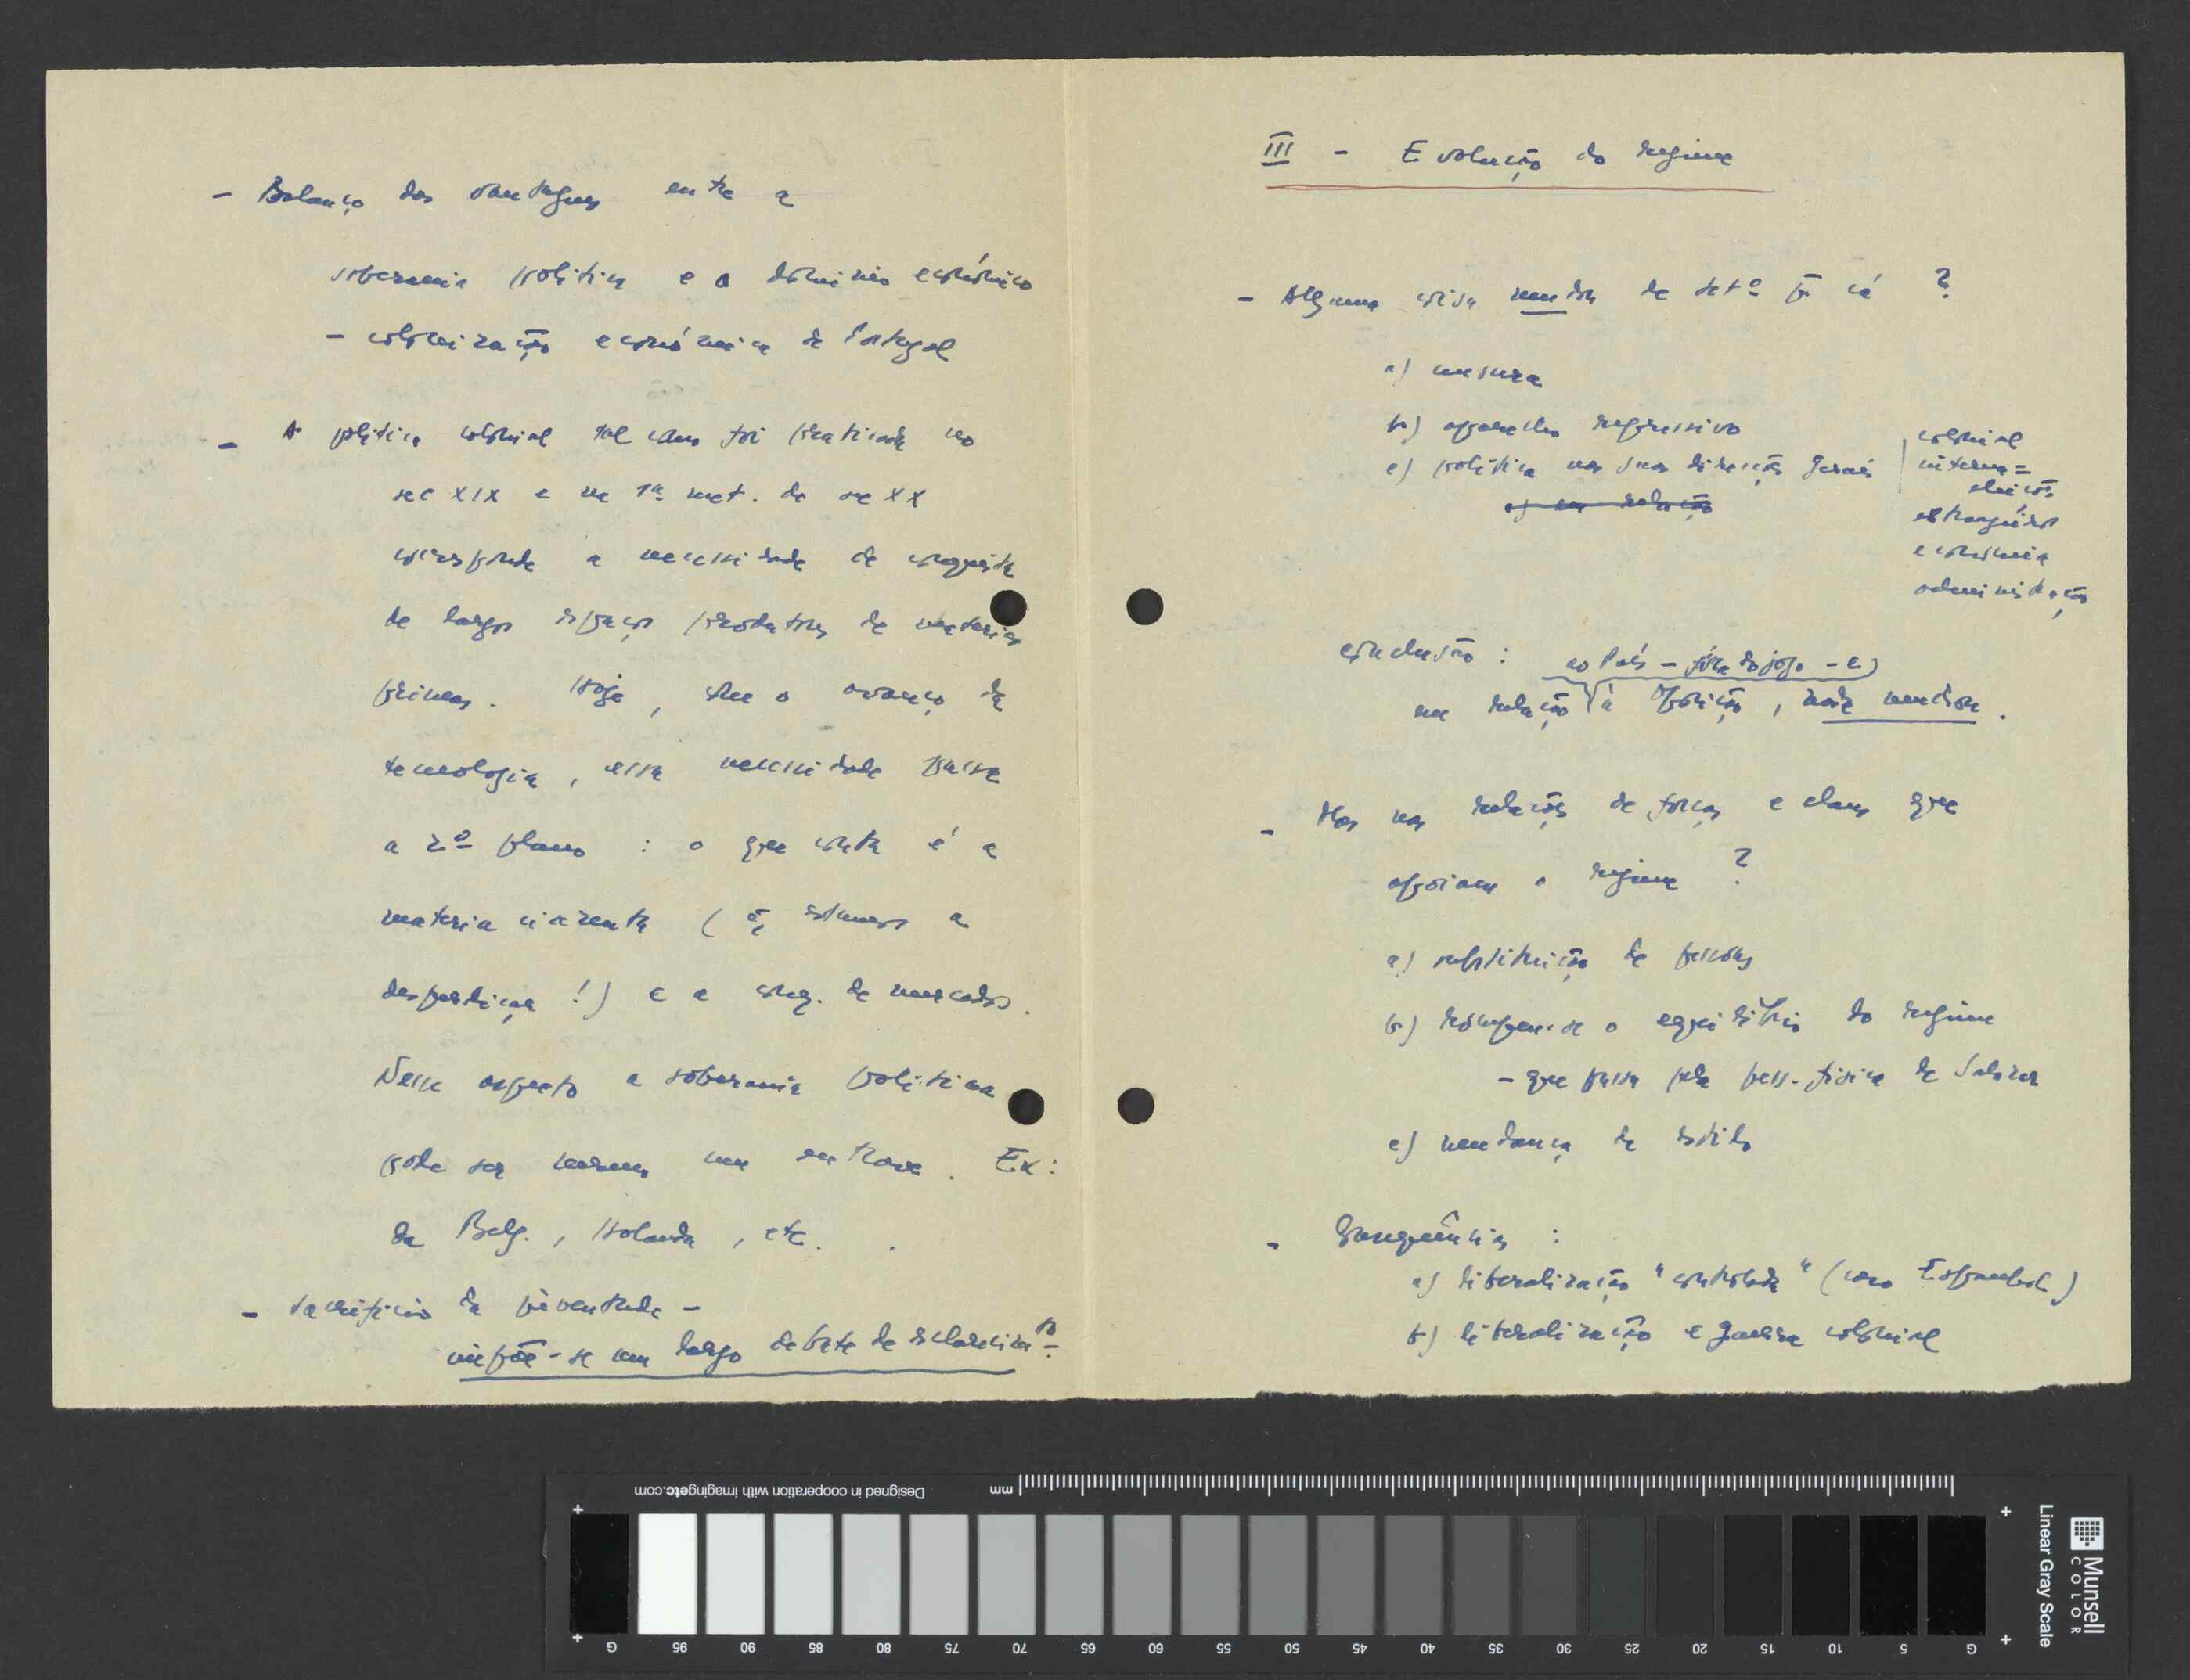 - Balanço das vantagens entre a
soberania politica e o dominio económico
- colonização económica de Portugal
- A politica colonial tal como foi praticada no
sec XIX e na 1ª met. do sec XX
corresponde a necessidade de conquista
de largos espaços produtores de materias
primas. Hoje, com o avanço da
tecnologia, essa necessidade passa
a 2º plano : o que conta é a
materia cinzenta (q̃ estamos a
desperdiçar !) e a conq. de mercados.
Nesse aspecto a soberania politica
pode ser mesmo um entrave. Ex:
da Belg., Holanda, etc.
- Sacrificio da juventude -
impõe-se um largo debate de esclarecimᵗᵒ
III - Evolução do regime
- Alguma coisa mudou de setº p. cá ?
a) censura
b) aparelho repressivo
c) politica nas suas direcções gerais
colonial
interna =
eleições
estrangeiros
economia
administração
a) em relação
conclusão : ao País - fóra do jogo - e
em relação à Oposição, nada mudou.
- Mas nas relações de forças e clans que
apoiam o regime ?
a) substituição de pessoas
b) rompeu-se o equilíbrio do regime
- que passa pela pess. fisica de Salazar
c) mudança de estilo
- Consequências :
a) liberalização "controlada" (caso Espanhol)
b) liberalização e guerra colonial
Designed in cooperation with imagingetc.com
mm
G 95 90 85 80 75 70 65 60 55 50 45 40 35 30 25 20 15 10 5 G
Munsell
COLOR
Linear Gray Scale